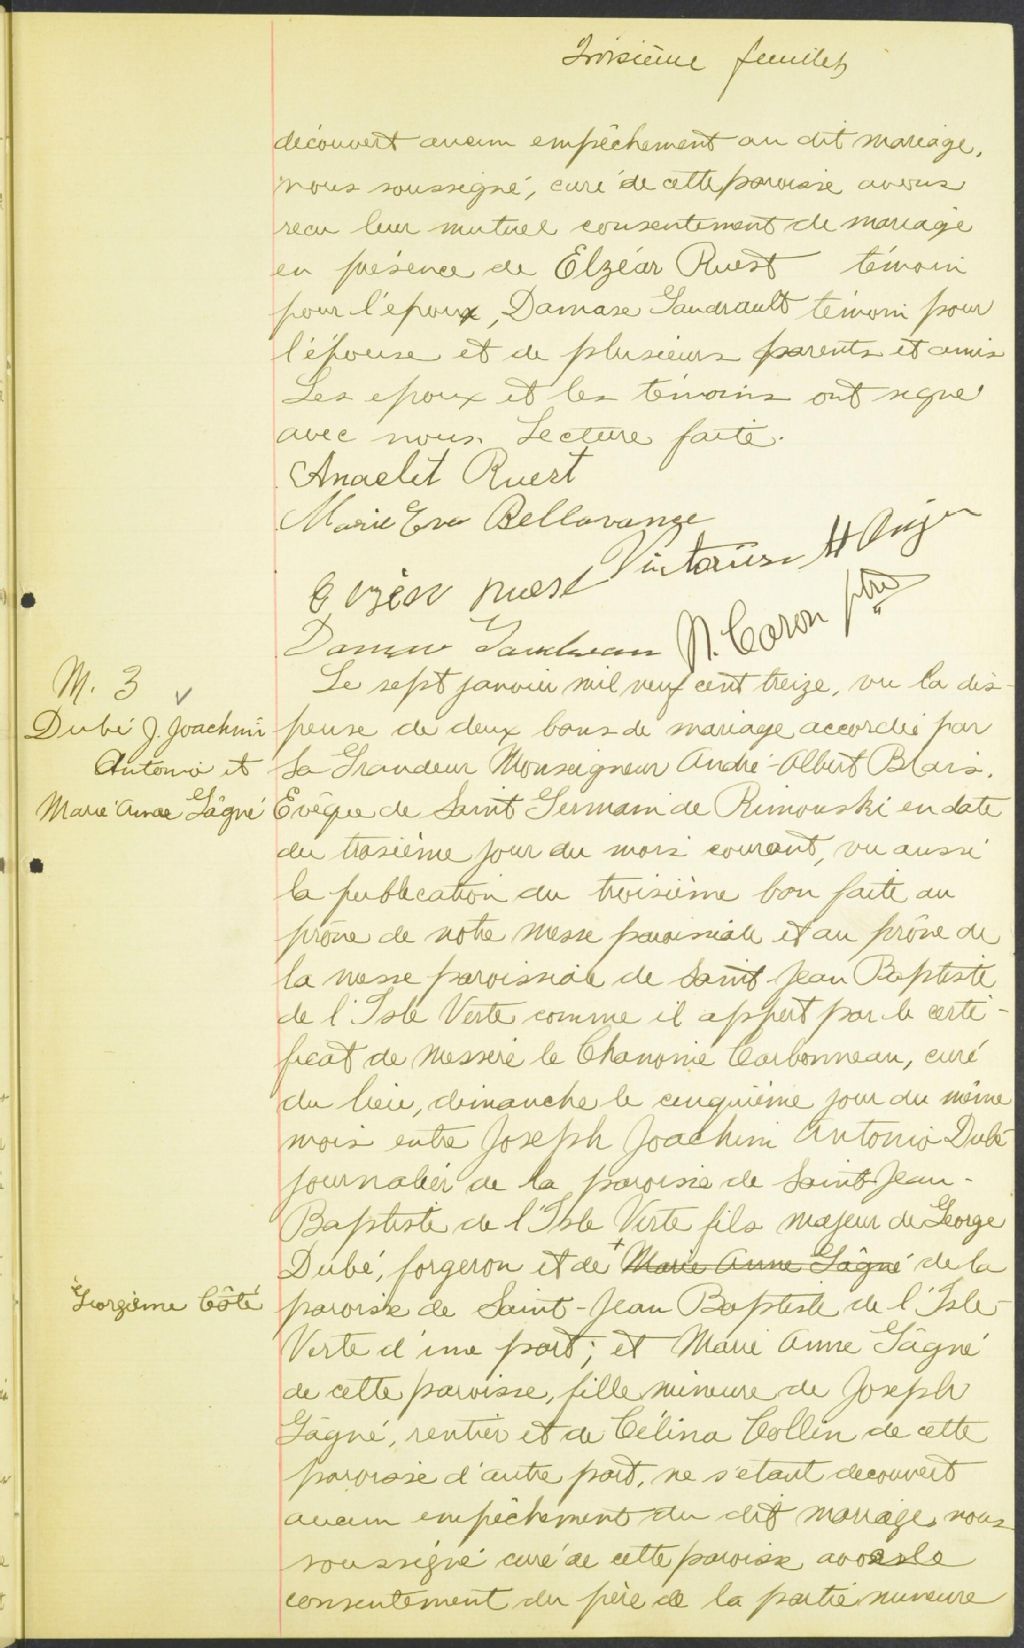 Troisième feuillet
découvert aucun empêchement au dit mariage,
nous soussigné, curé de cette paroisse avons
reçu leur mutuel consentement de mariage
en présence de Elzéar Ruest témoin
pour l'époux, Damase Gaudrault témoin pour
l'épouse et de plusieurs parents et amis
Les epoux et les témoins ont signé
avec nous. Lecture faite.
Anaclet Ruest
Marie Eva Bellavance
Victorise H
Elzéar Ruest
N. Caron ptre
Damase
M. 3
Dubé J. Joachim
Antonio et
Marie Anne Gâgné
Le sept janvier mil neuf cent treize, vu la dis-
pense de deux bans de mariage accordée par
Sa Grandeur Monseigneur André-Albert Blais,
Evêque de Saint Germain de Rimouski en date
du troisième jour du mois courant, vu aussi
la publication du troisième ban faite au
prône de notre messe paroissiale et au prône de
la messe paroissiale de Saint-Jean Baptiste
de l'Isle Verte comme il appert par le certi-
ficat de messire le Chanoine Carbonneau, curé
du lieu, dimanche le cinquième jour du même
mois entre Joseph Joachim Antonio Dubé
journalier de la paroisse de Saint-Jean-
Baptiste de l'Isle Verte fils majeur de George
Dubé, forgeron et de + Marie Anne Gâgné de la
+ Georgième Côté
paroisse de Saint-Jean Baptiste de l'Isle-
Verte d'une part; et Marie Anne Gâgné
de cette paroisse, fille mineure de Joseph
Gâgné, rentier et de Célina Collin de cette
paroisse d'autre part, ne s'etant decouvert
aucun empêchement au dit mariage, nous
soussigné curé de cette paroisse avons le
consentement du père de la partie mineure